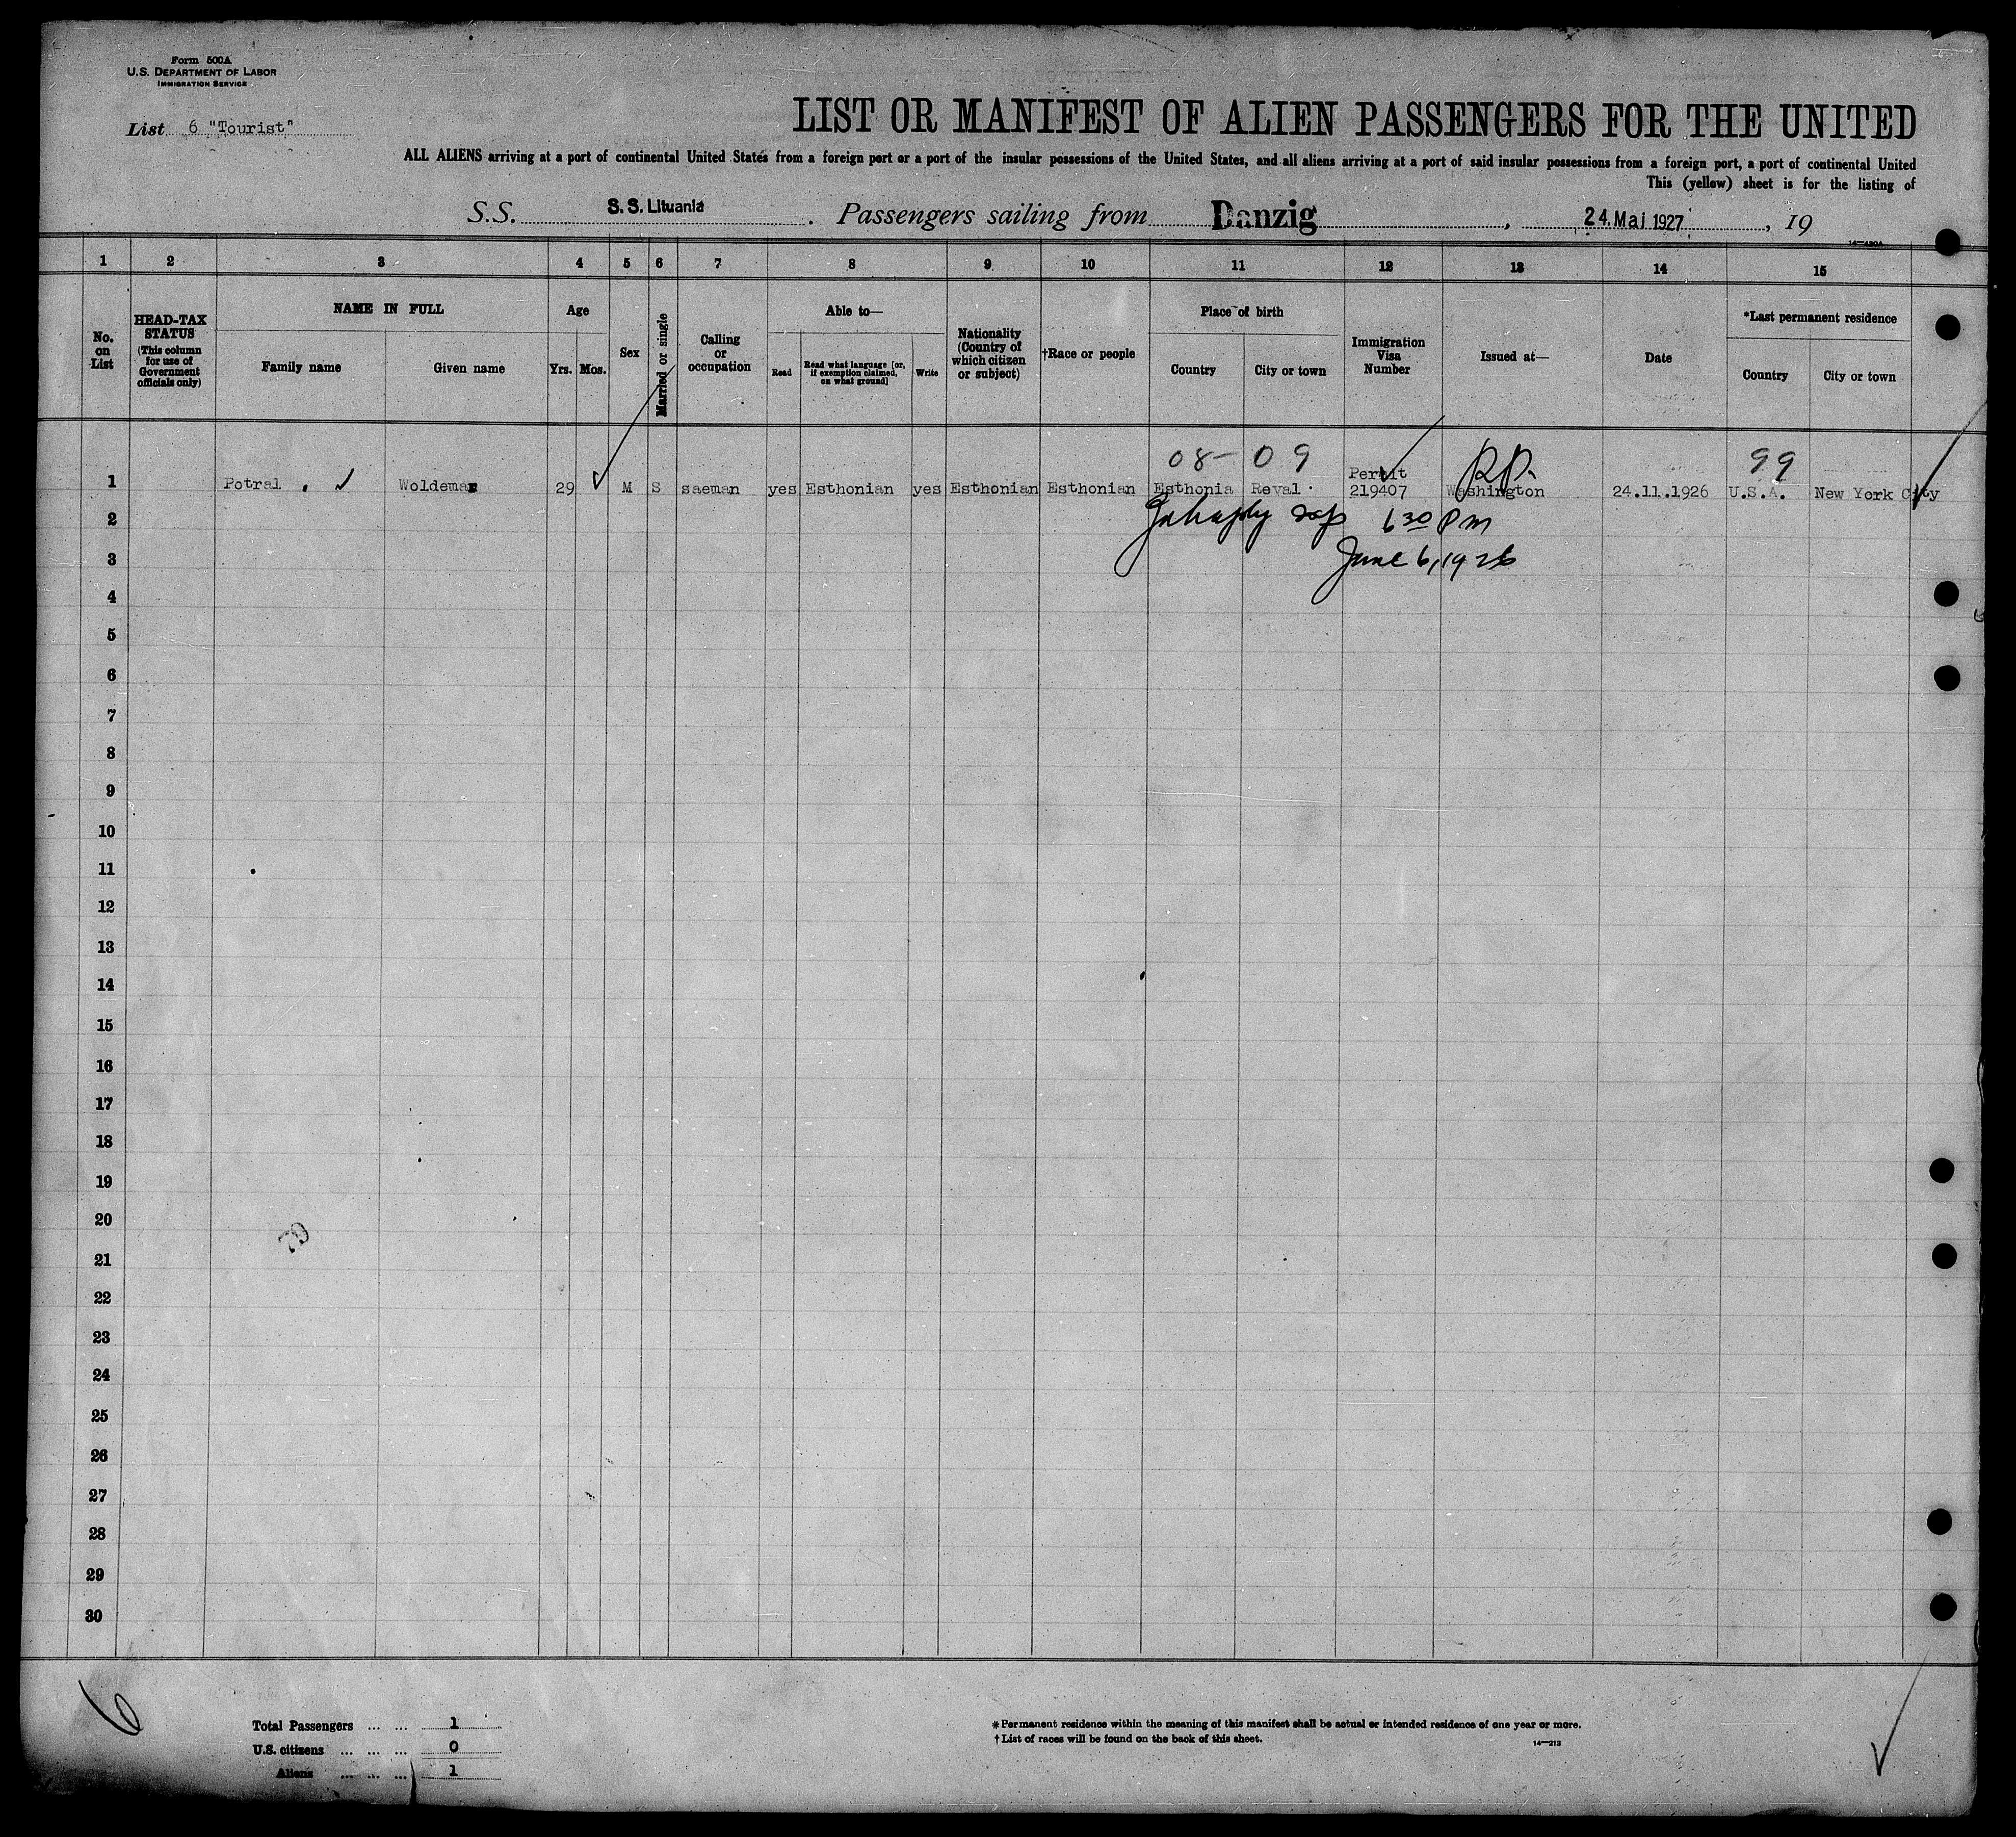 Form 500A
U.S. DEPARTMENT OF LABOR
IMMIGRATION SERVICE
List 6 "Tourist"
LIST OR MANIFEST OF ALIEN PASSENGERS FOR THE UNITED
ALL ALIENS arriving at a port of continental United States from a foreign port or a port of the insular possessions of the United States, and all aliens arriving at a port of said insular possessions from a foreign port, a port of continental United
This (yellow) sheet is for the listing of
S.S. S.S. Lituania. Passengers sailing from Danzig, 24. Mai 1927, 19
14—480A
1 2 3 4 5 6 7 8 9 10 11 12 13 14 15
No. on List
HEAD-TAX STATUS
(This column for use of Government officials only)
NAME IN FULL
Family name
Given name
Age
Yrs. Mos.
Sex
Married or single
Calling or occupation
Able to—
Read
Read what language [or, if exemption claimed, on what ground]
Write
Nationality (Country of which citizen or subject)
†Race or people
Place of birth
Country
City or town
Immigration Visa Number
Issued at—
Date
*Last permanent residence
Country
City or town
08- 09 RP. 99
Permit
1 Potral . Woldemar 29 M S saeman yes Esthonian yes Esthonian Esthonian Esthonia Reval. 219407 Washington 24.11.1926 U.S.A. New York City
2 6 30 PM
3 June 6, 1926
4
5
6
7
8
9
10
11
12
13
14
15
16
17
18
19
20
21
22
23
24
25
26
27
28
29
30
6
Total Passengers ... ... 1
U.S. citizens ... ... ... 0
Aliens ... ... ... 1
*Permanent residence within the meaning of this manifest shall be actual or intended residence of one year or more.
†List of races will be found on the back of this sheet.
14—213